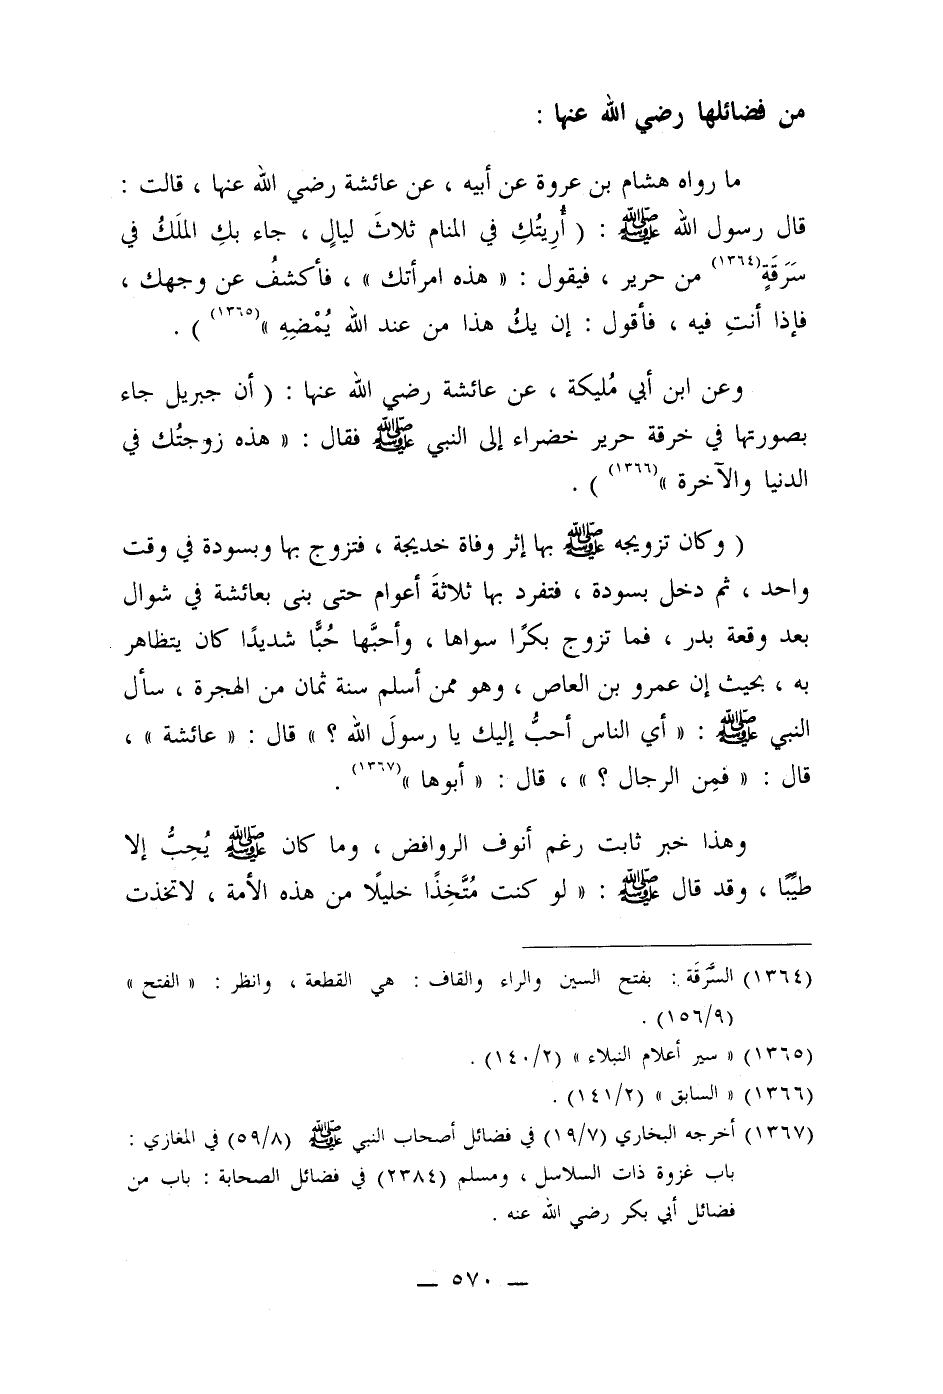 من فضائلها رضي الله عنها :
ما رواه هشام بن عروة عن أبيه ، عن عائشة رضي الله عنها ، قالت :
قال رسول الله ﷺ : ( أُرِيتُكِ في المنام ثلاثَ ليالٍ ، جاء بكِ الملَكُ في
سَرَقَةٍ(١٣٦٤) من حرير ، فيقول : « هذه امرأتك » ، فأكشفُ عن وجهك ،
فإذا أنتِ فيه ، فأقول : إن يكُ هذا من عند الله يُمْضِهِ »(١٣٦٥) ) .
وعن ابن أبي مُليكة ، عن عائشة رضي الله عنها : ( أن جبريل جاء
بصورتها في خرقة حرير خضراء إلى النبي ﷺ فقال : « هذه زوجتُك في
الدنيا والآخرة »(١٣٦٦) ) .
( وكان تزويجه ﷺ بها إثر وفاة خديجة ، فتزوج بها وبسودة في وقت
واحد ، ثم دخل بسودة ، فتفرد بها ثلاثةَ أعوام حتى بنى بعائشة في شوال
بعد وقعة بدر ، فما تزوج بكرًا سواها ، وأحبَّها حُبًّا شديدًا كان يتظاهر
به ، بحيث إن عمرو بن العاص ، وهو ممن أسلم سنة ثمان من الهجرة ، سأل
النبي ﷺ : « أي الناس أحبُّ إليك يا رسولَ الله ؟ » قال : « عائشة » ،
قال : « فمِن الرجال ؟ » ، قال : « أبوها »(١٣٦٧) .
وهذا خبر ثابت رغم أنوف الروافض ، وما كان ﷺ يُحِبُّ إلا
طيِّبًا ، وقد قال ﷺ : « لو كنت مُتَّخِذًا خليلًا من هذه الأمة ، لاتخذت
(١٣٦٤) السَّرَقَة : بفتح السين والراء والقاف : هي القطعة ، وانظر : « الفتح »
(١٥٦/٩) .
(١٣٦٥) « سير أعلام النبلاء » (١٤٠/٢) .
(١٣٦٦) « السابق » (١٤١/٢) .
(١٣٦٧) أخرجه البخاري (١٩/٧) في فضائل أصحاب النبي ﷺ (٥٩/٨) في المغازي :
باب غزوة ذات السلاسل ، ومسلم (٢٣٨٤) في فضائل الصحابة : باب من
فضائل أبي بكر رضي الله عنه .
— ٥٧٠ —